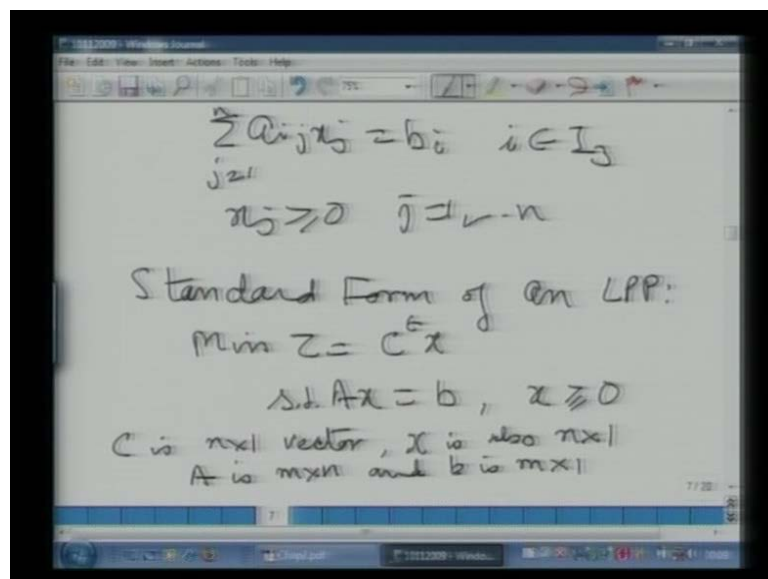 10112009 - Windows Journal
File Edit View Insert Actions Tools Help
75%
n
Σ aijxj = bi i ∈ I3
j=1
xj ≥ 0 j = 1, - - n
Standard Form of an LPP:
Min Z = C^t x
s.t. Ax = b, x ≥ 0
C is n×1 vector, x is also n×1
A is m×n and b is m×1
7/20
7
Chap2.pdf 10112009 - Windo...